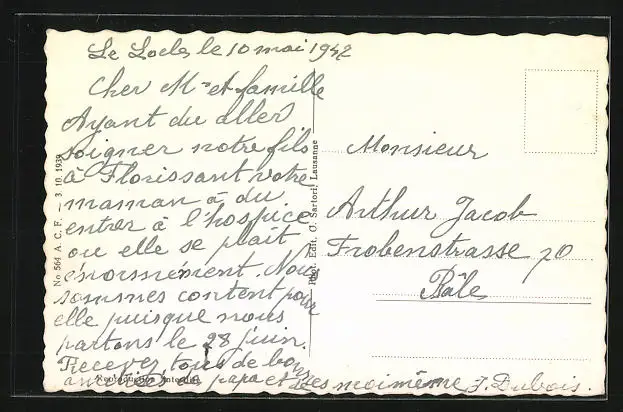 Le Locle, le 10 mai 1942
Cher M. et famille
Ayant du aller
soigner notre fils
à Florissant votre
maman à du
entrer à l'hospice
ou elle se plait
énormément. Nous
sommes content pour
elle puisque nous
partons le 28 juin.
Recevez tous de bons
de papa et
moimême J. Dubois.
Monsieur
Arthur Jacob
Frobenstrasse 70
Bâle
No 564 A. C. F. — 3. 10. 1939
Phot. Edit. O. Sartori, Lausanne
Reproduction interdite